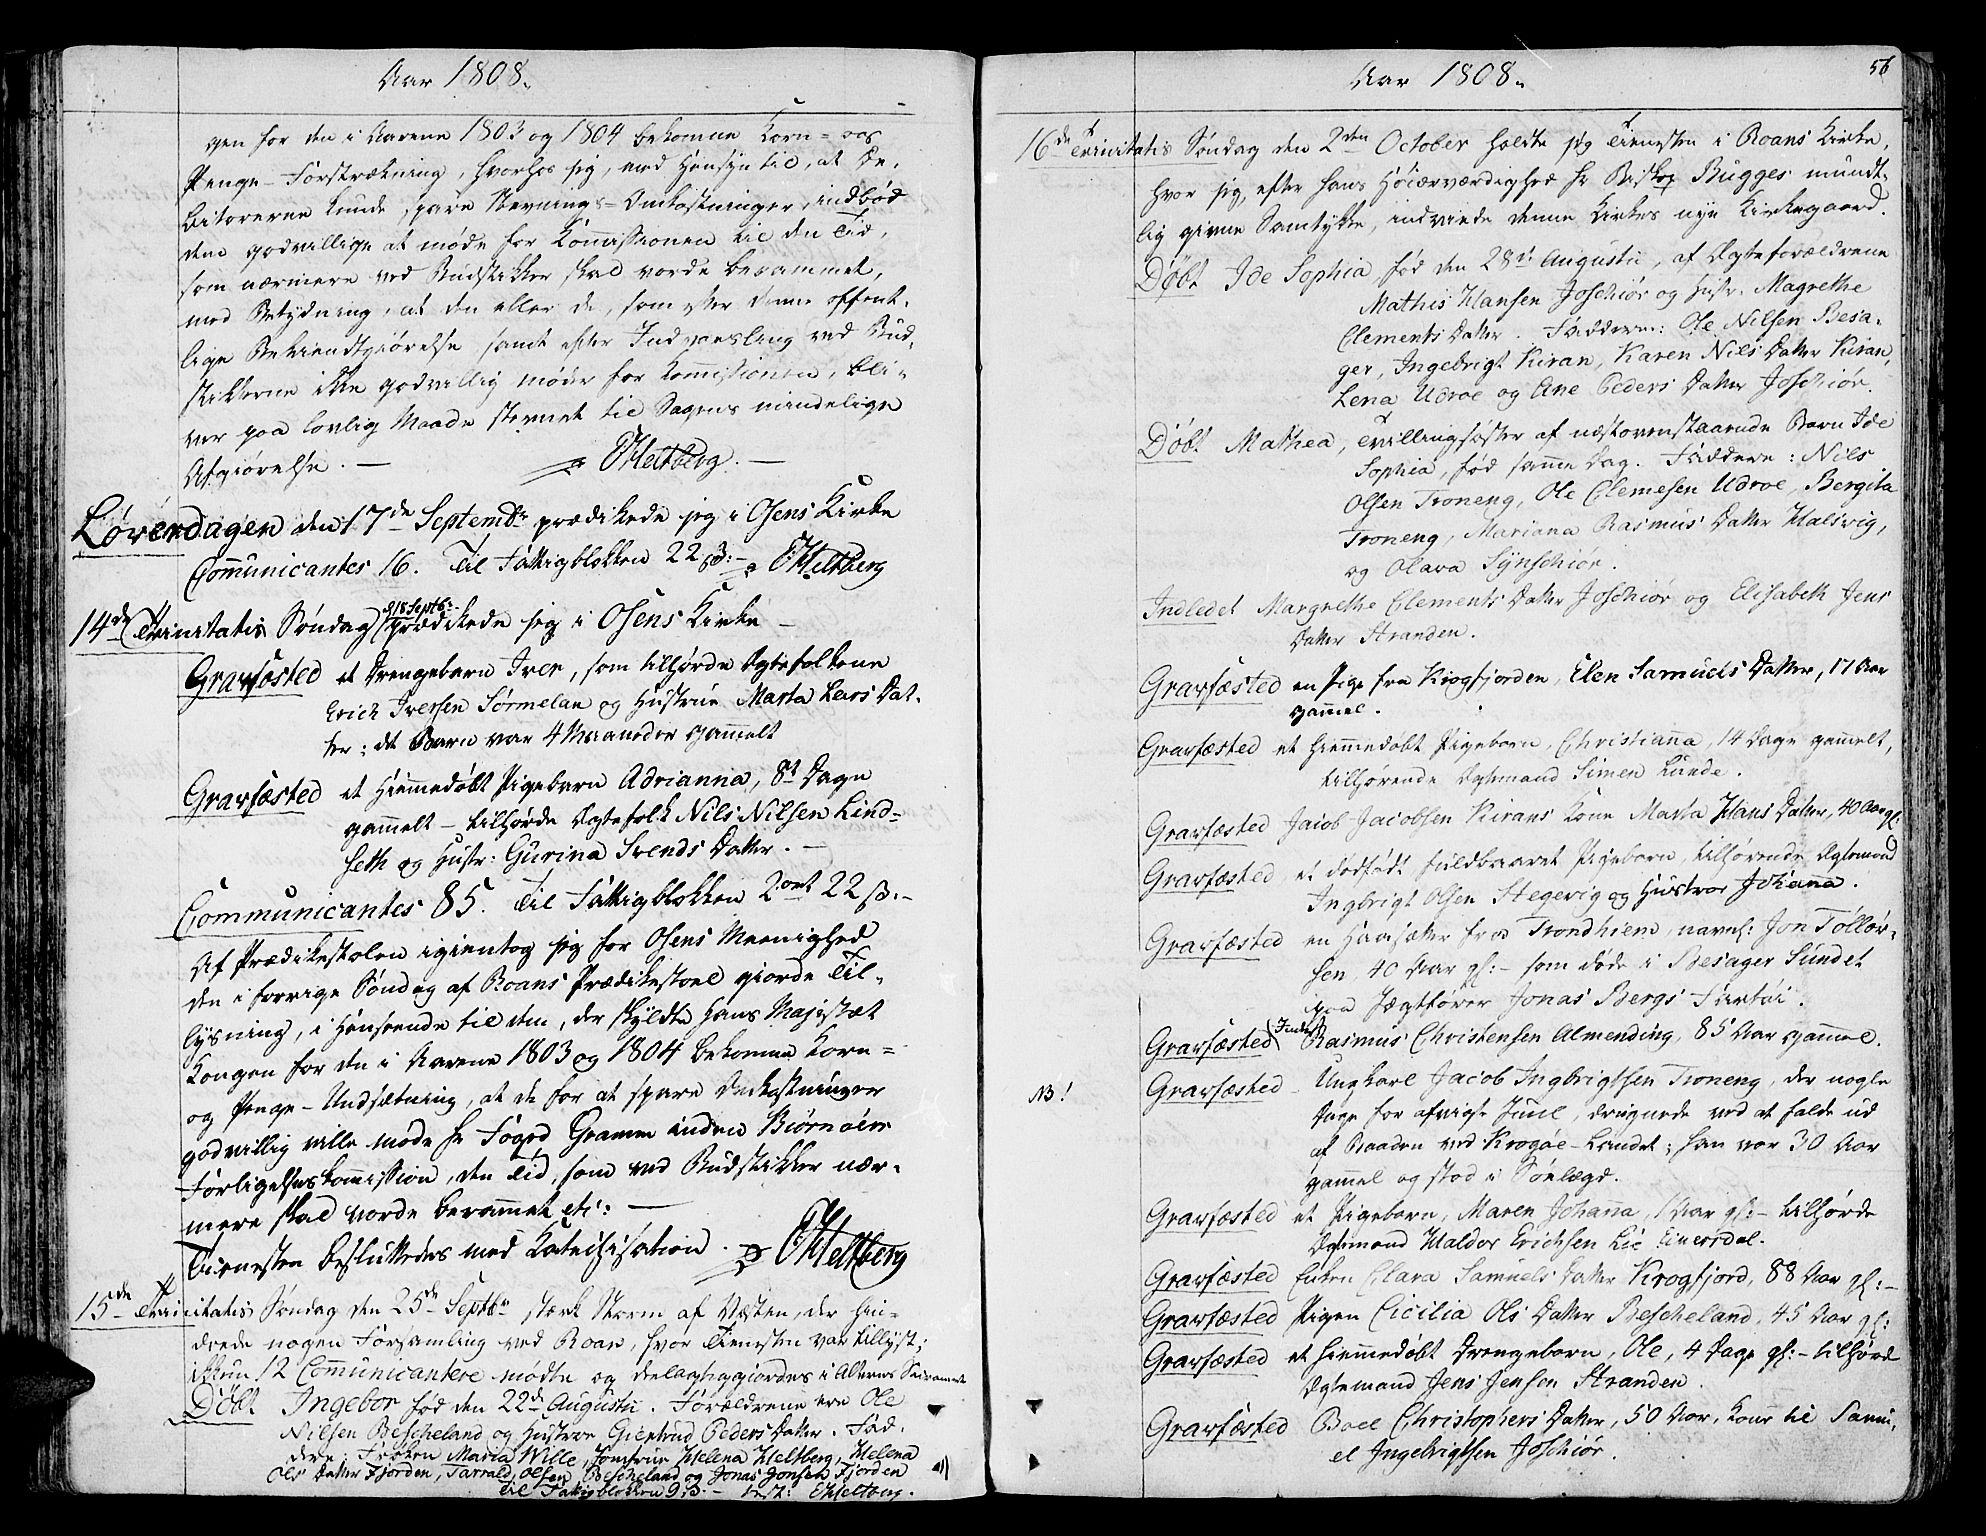 Aar 1808.
gen for den i Aarene 1803 og 1804 bekomne Korn- og
Penge-Forstrækning, hvorhos jeg, med Hensyn til, at De-
bitorerne kunde spare Stevnings-Omkostninger, indbød
dem godvilligen at møde for Kommissionen til den Tid,
som nærmere ved Budstikker skal vorde berammet,
med Betydning, at den eller de, som efter denne offent-
lige Bekiendtgiørelse samt efter Indvarsling ved Bud-
stikkerne ikke godvillig møder for Komissionen, bli-
ver paa lovlig Maade stevnet til Sagens mindelige
Afgiørelse. — OHeltberg. —
Løverdagen den 17de Septembr prædikede jeg i Osens Kirke
Communicantes 16. Til Fattigblokken 22 ß:- OHeltberg
14de Trinitatis Søndag (d 18 Septb:) prædikede jeg i Osens Kirke —
Gravfæsted et Drengebarn Iver, som tilhørde Ægtefolkene
Erich Iversen Sørmelan og Hustrue Marta Lars Dat-
ter; det Barn var 4 Maaneder gammelt
Gravfæsted et Hiemmedøbt Pigebarn Adrianna, 8t Dage
gammelt — tilhørde Ægtefolk Nils Nilsen Lind-
seth og Hustr: Gurina Svends Datter. —
Communicantes 85. Til Fattigblokken 2 ort 22 ß.-
Af Prædikestolen igientog jeg for Osens Meenighed
den i forrige Søndag af Roans Prædikestoel giorde Til-
lysning, i Henseende til dem, der skyldte Hans Majestæt
Kongen for den i Aarene 1803 og 1804 bekomne Korn-
og Penge-Undsætning, at de for at spare Omkostninger
godvillig ville møde Hr Foged Gramm inden Biørnøers
Forligelseskommission, den Tid, som ved Budstikker nær-
mere skal vorde berammet etc: —
Tienesten besluttedes med Katechisation. OHeltberg
15de Trinitatis Søndag den 25de Septbr stærk Storm af Vesten, der hin-
drede nogen Forsamling ved Roan, hvor Tienesten var tillyst;
ikkun 12 Communicantere mødte og deelagtiggiordes i Alterens Sacramet
Døbt Ingebor fød den 22de Augustii. Forældrene ere Ole
Nilsen Bescheland og Hustrue Giertrud Peders Datter. Fad-
dere: Frøken Maria Wille, Jomfrue Helena Heltberg, Helena
Ols Datter Fjorden, Tarrald Olsen Bescheland og Jonas Jonsen Fjorden
Til Fattigblokken 9 ß.- test: OHeltberg.
Aar 1808.
56
16de Trinitatis Søndag den 2den October holdte jeg Tienesten i Roans Kirke,
hvor jeg, efter Hans Høiærværdighed Hr Biskop Bugges mundt-
lig givne Samtykke, indviede denne Kirkes nye Kirkegaard.
Døbt Ide Sophia, fød den 28de Augustii, af Ægteforældrene
Mathis Hansen Joschiør og Hustr. Magrethe
Clements Datter. Faddere: Ole Nilsen Besa-
ger, Ingebrigt Kiran, Karen Nils Datter Kiran,
Lena Udroe og Ane Peders Datter Joschiør.
Døbt Mathea, Tvillingsøster af næstovenstaaende Barn Ide
Sophia, fød samme Dag. Faddere: Nils
Olsen Troneng, Ole Clemesen Udroe, Bergita
Troneng, Mariana Rasmus Datter Halsvig,
og Olava Synschiør.
Indledet Margrethe Clements Datter Joschiør og Elisabeth Jens
Datter Stranden.
Gravfæsted en Pige fra Krogfjorden, Elen Samuels Datter, 17 Aar
gammel.
Gravfæsted et Hiemmedøbt Pigebarn, Christianna, 14 Dage gammelt,
tilhørende Ægtemand Simen Lunde.
Gravfæsted Jacob Jacobsen Kirans Kone Marta Hans Datter, 40 Aar gl:
Gravfæsted et dødfødt fuldbaaret Pigebarn, tilhørende Ægtemand
Ingbrigt Olsen Stegevig og Hustroe Johanna.
Gravfæsted en Haarsæker fra Trondhiem, navnl: Jon Tollor-
sen 40 Aar gl:- som døde i Besager Sundet
paa Jægtfører Jonas Bergs Fartøi.
Gravfæsted (Inders) Rasmus Christensen Almending, 85 Aar gammel.
NB! Gravfæsted Ungkarl Jacob Ingbrigtsen Troneng, der nogle
Dage før afvigte Juul, druknede ved at falde ud
af Baaden ved Krogøe-Landet; han var 30 Aar
gammel og stod i Søelægd.
Gravfæsted et Pigebarn, Maren Johanna, 1 Aar gl:- tilhørde
Ægtemand Haldor Erichsen Lie Einerdal.
Gravfæsted Enken Clara Samuels Datter Krogfjord, 88 Aar gl:-
Gravfæsted Pigen Cicilia Ols Datter Bescheland, 45 Aar gl:
Gravfæsted et Hiemmedøbt Drengebarn, Ole, 4 Dage gl:- tilhørde
Ægtemand Jens Jensen Stranden.
Gravfæsted Boel Christophers Datter, 50 Aar, Kone til Samu-
el Ingebrigtsen Joschiør.